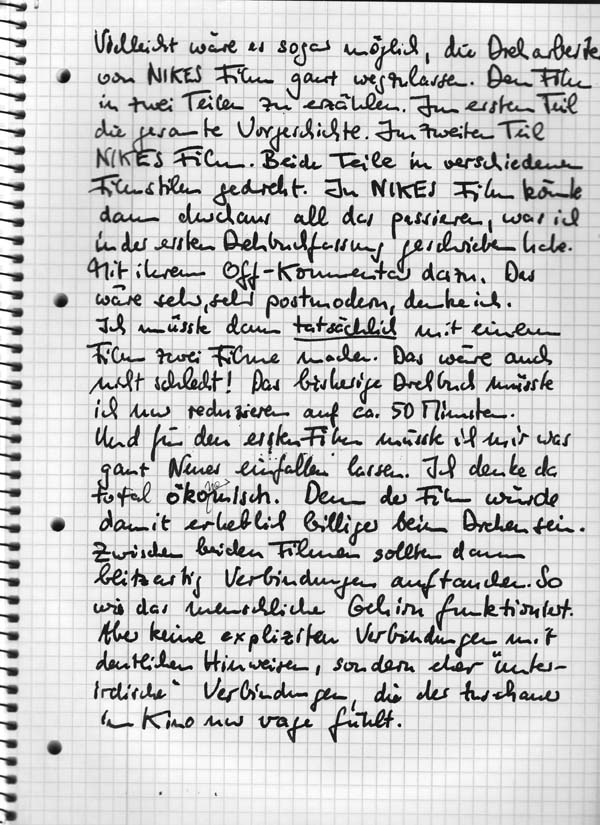 Vielleicht wäre es sogar möglich, die Dreharbeiten
von NIKES Film ganz wegzulassen. Den Film
in zwei Teilen zu erzählen. Im ersten Teil
die gesamte Vorgeschichte. Im zweiten Teil
NIKES Film. Beide Teile in verschiedenen
Filmstilen gedreht. In NIKES Film könnte
dann durchaus all das passieren, was ich
in der ersten Drehbuchfassung geschrieben habe.
Mit ihrem Off-Kommentar dazu. Das
wäre sehr, sehr postmodern, denke ich.
Ich müsste dann tatsächlich mit einem
Film zwei Filme machen. Das wäre auch
nicht schlecht! Das bisherige Drehbuch müsste
ich nur reduzieren auf ca. 50 Minuten.
Und für den ersten Film müsste ich mir was
ganz Neues einfallen lassen. Ich denke da
total ökonomisch. Denn der Film würde
damit erheblich billiger beim Drehen sein.
Zwischen beiden Filmen sollten dann
blitzartig Verbindungen auftauchen. So
wie das menschliche Gehirn funktioniert.
Aber keine expliziten Verbindungen mit
deutlichen Hinweisen, sondern eher "unter-
irdische" Verbindungen, die der Zuschauer
im Kino nur vage fühlt.